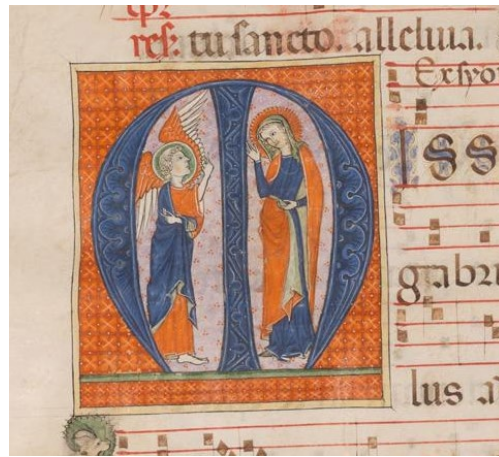 res: tu sancto. alleluia.
Ex syo
M
Iss
gabri
lus a